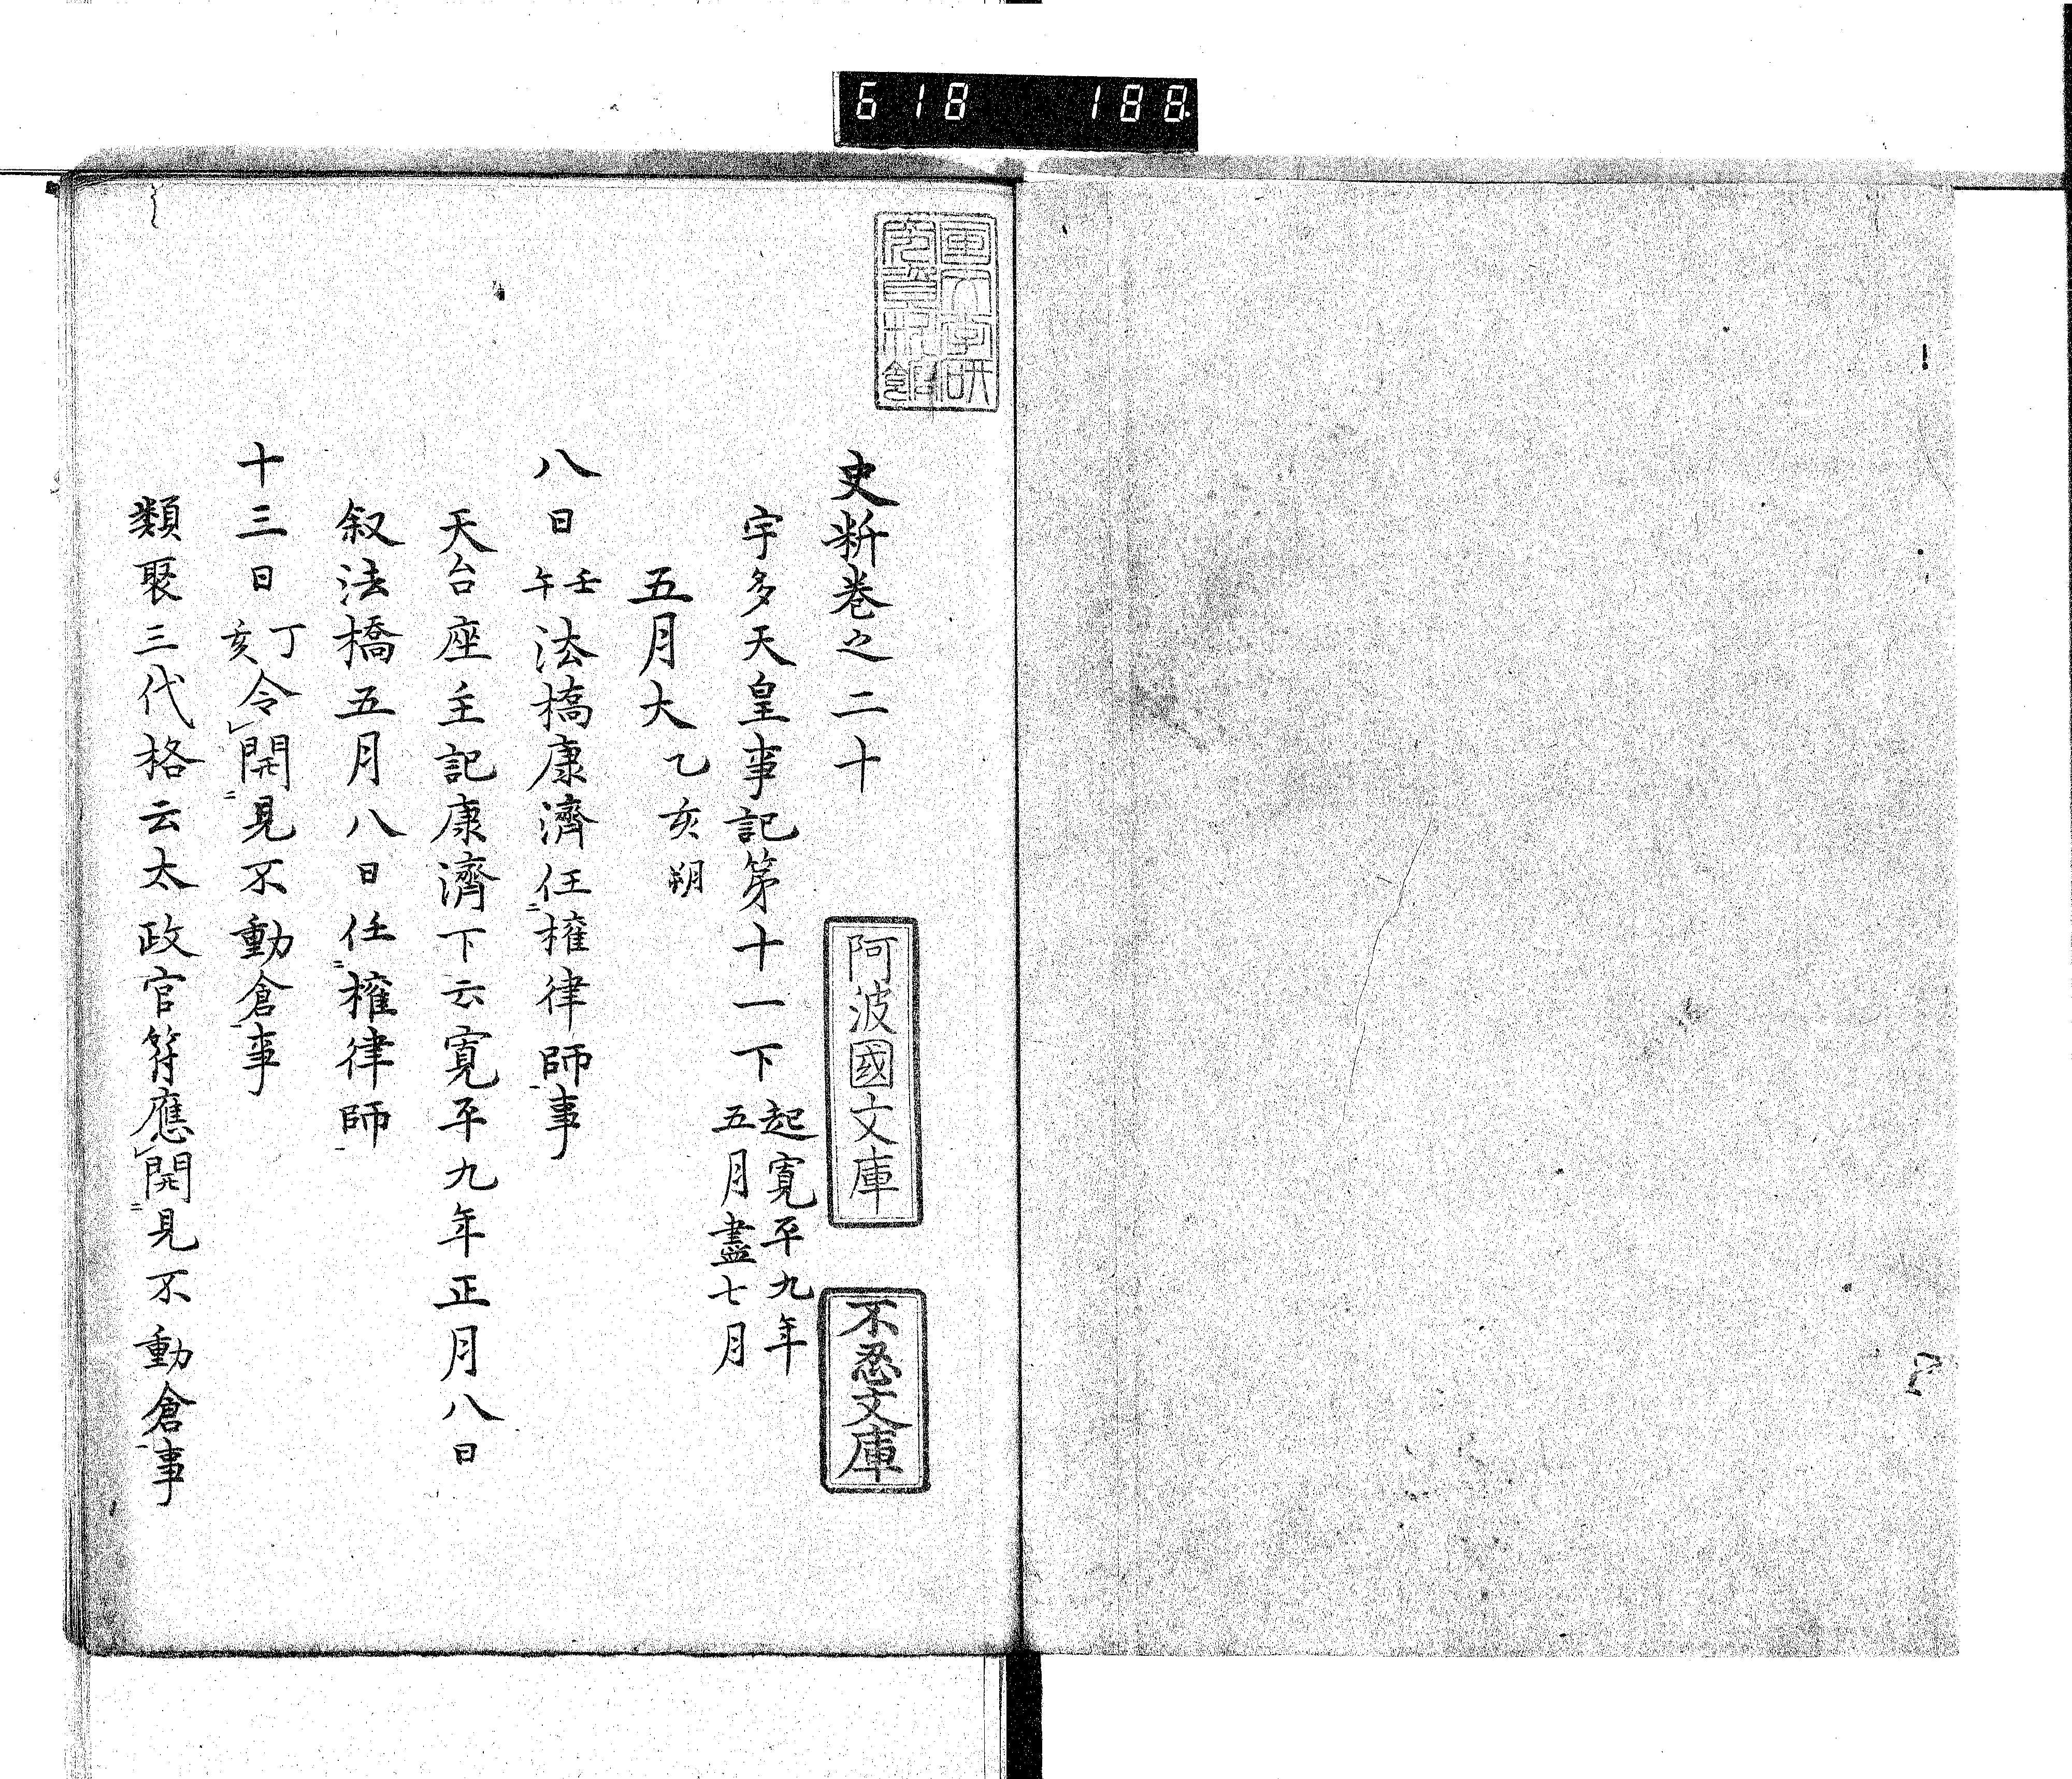 618 188
国文学研
究資料館
史料巻之二十
阿波國文庫
不忍文庫
宇多天皇事記第十一下 起寛平九年
五月盡七月
五月大 乙亥朔
八日 壬午 法橋康濟任二権律師一事
天台座主記康濟下云寛平九年正月八日
叙法橋五月八日任二権律師一
十三日 丁亥 令レ開二見不動倉一事
類聚三代格云太政官符應レ開二見不動倉一事